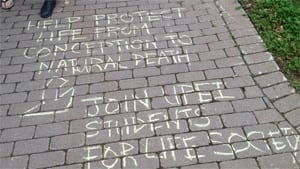 HELP PROTECT
LIFE FROM
CONCEPTION TO
NATURAL DEATH
JOIN UPEI
STUDENTS
FOR LIFE SOCIETY